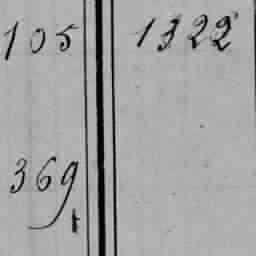 105 1322
369